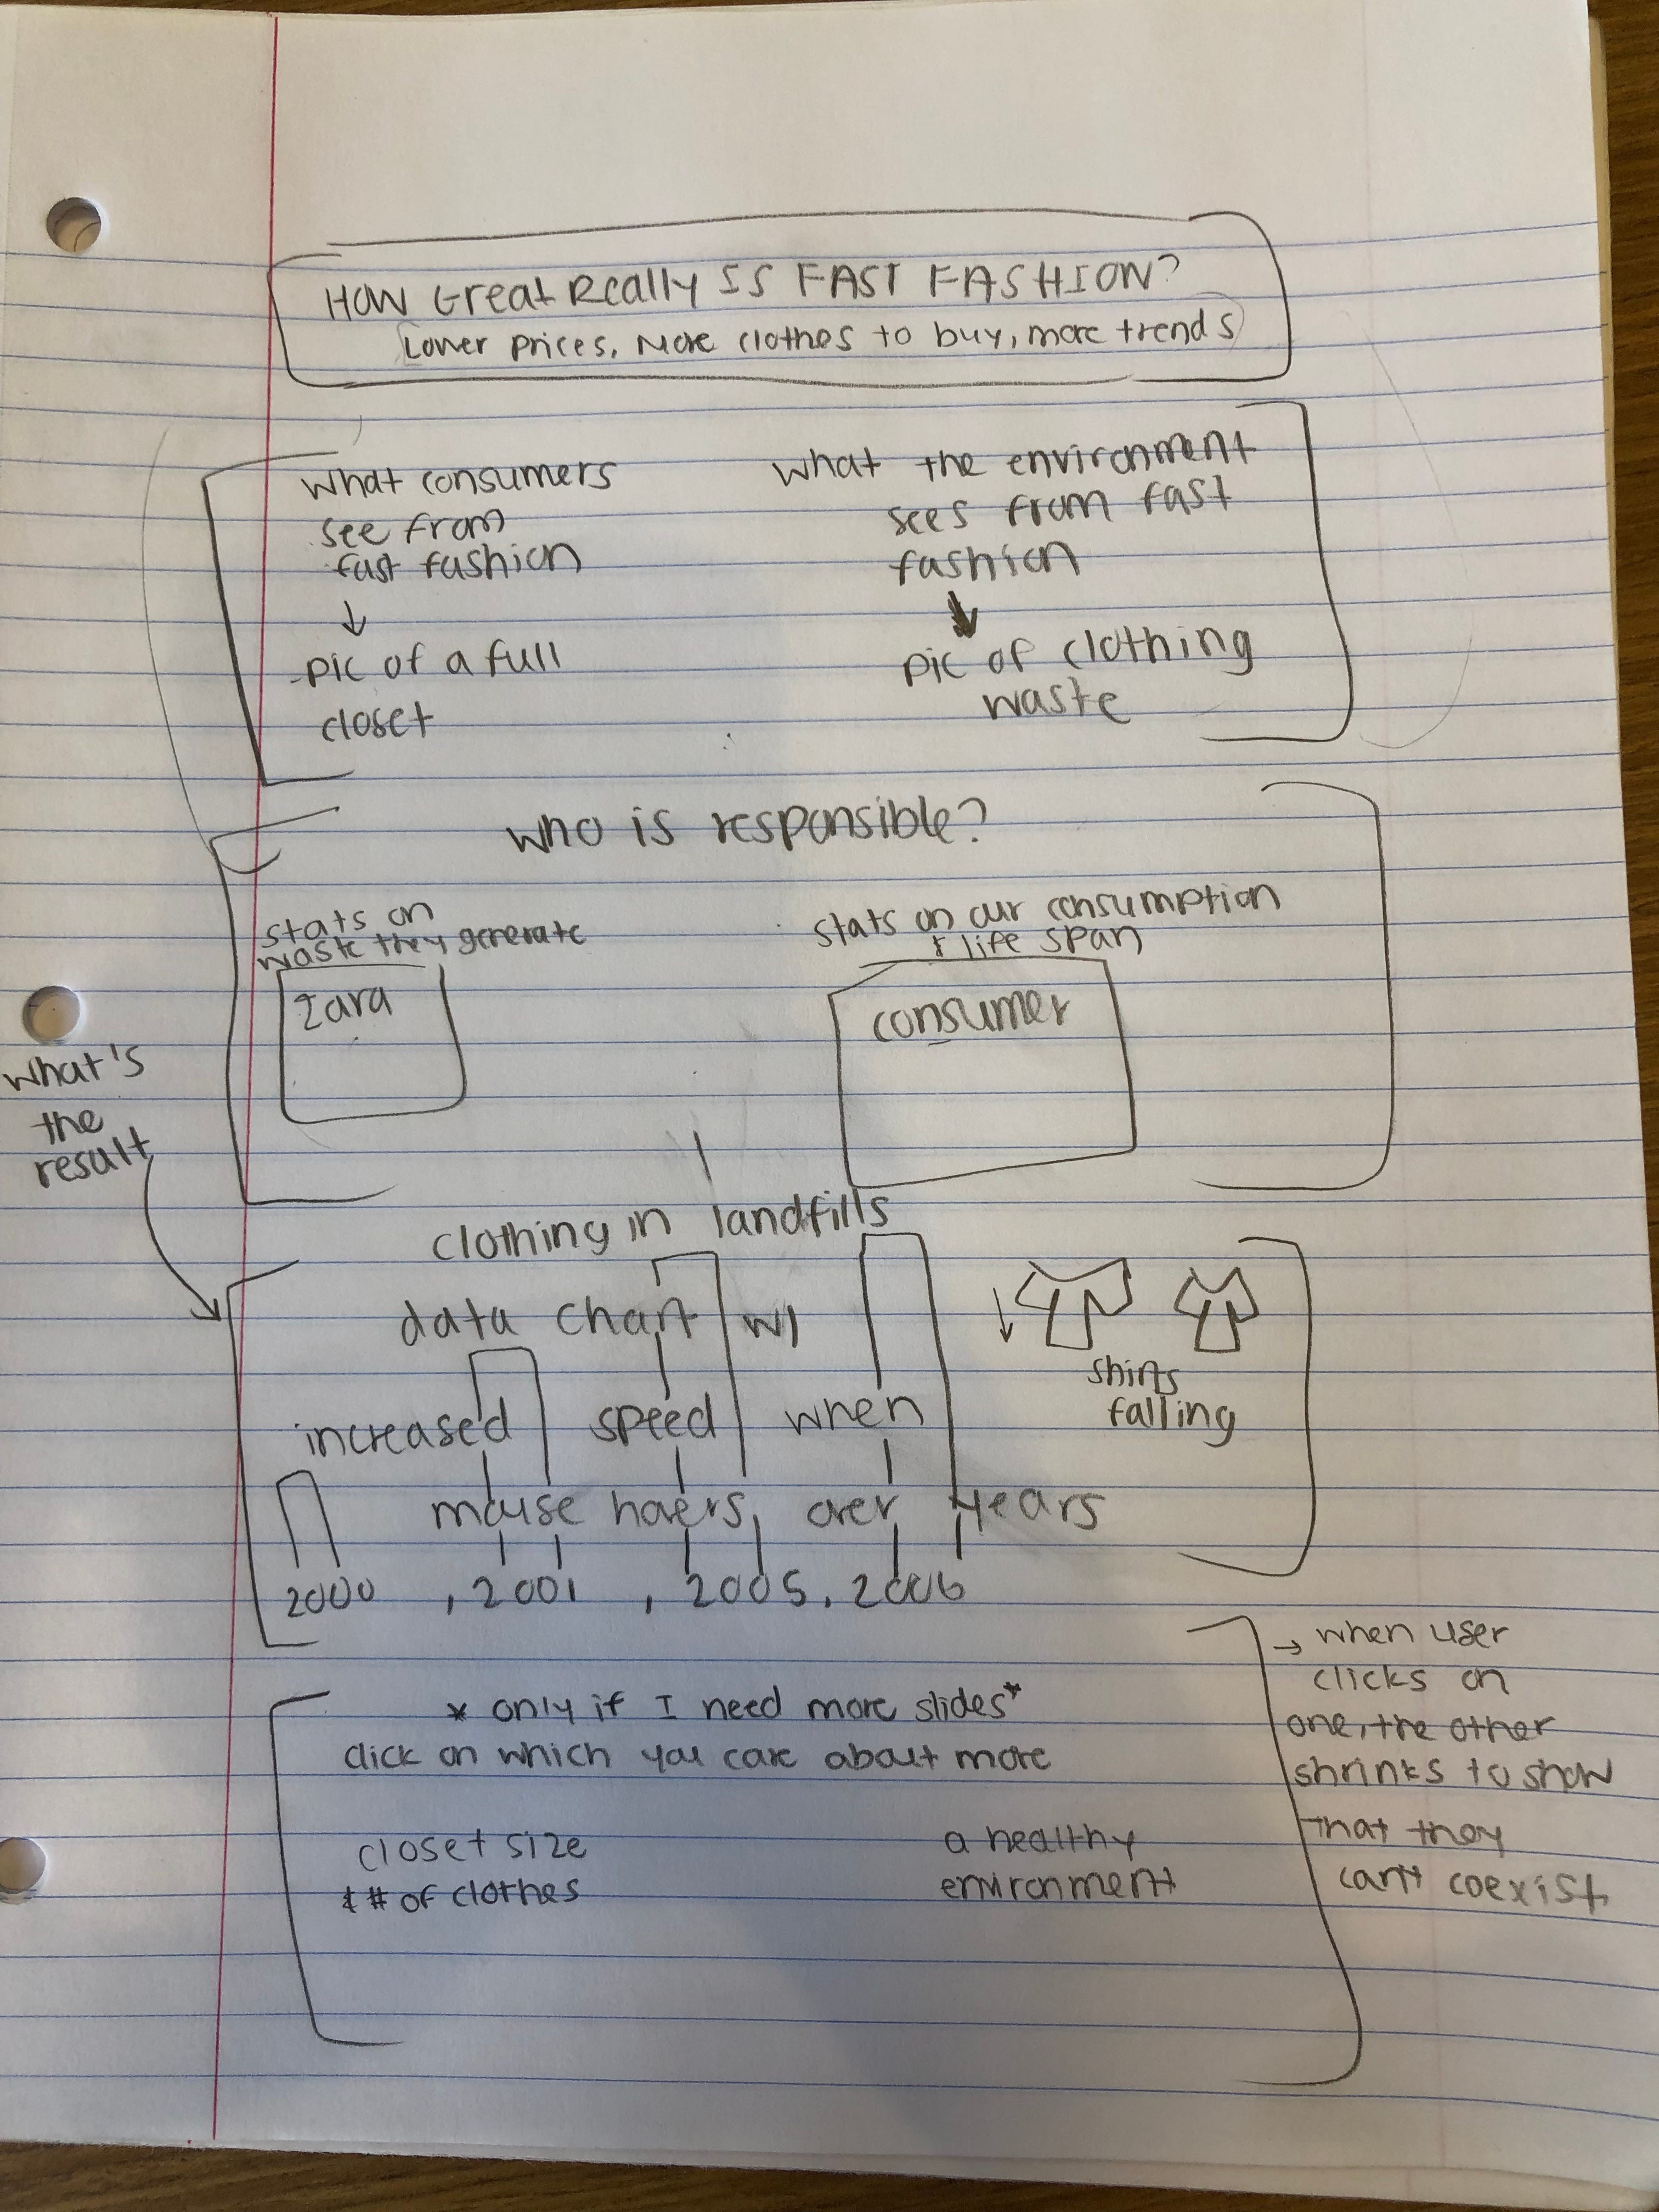 HOW Great Really IS FAST FASHION?
Lower prices, More clothes to buy, more trends
what consumers
see from
fast fashion
↓
pic of a full
closet
what the environment
sees from fast
fashion
↓
pic of clothing
waste
who is responsible?
stats on
waste they generate
Zara
stats on our consumption
& life span
consumer
what's
the
result
clothing in landfills
data chart w/
increased speed when
mouse hovers over years
2000, 2001, 2005, 2006
shirts
falling
* only if I need more slides*
click on which you care about more
closet size
& # of clothes
a healthy
environment
→ when user
clicks on
one, the other
shrinks to show
that they
can't coexist.